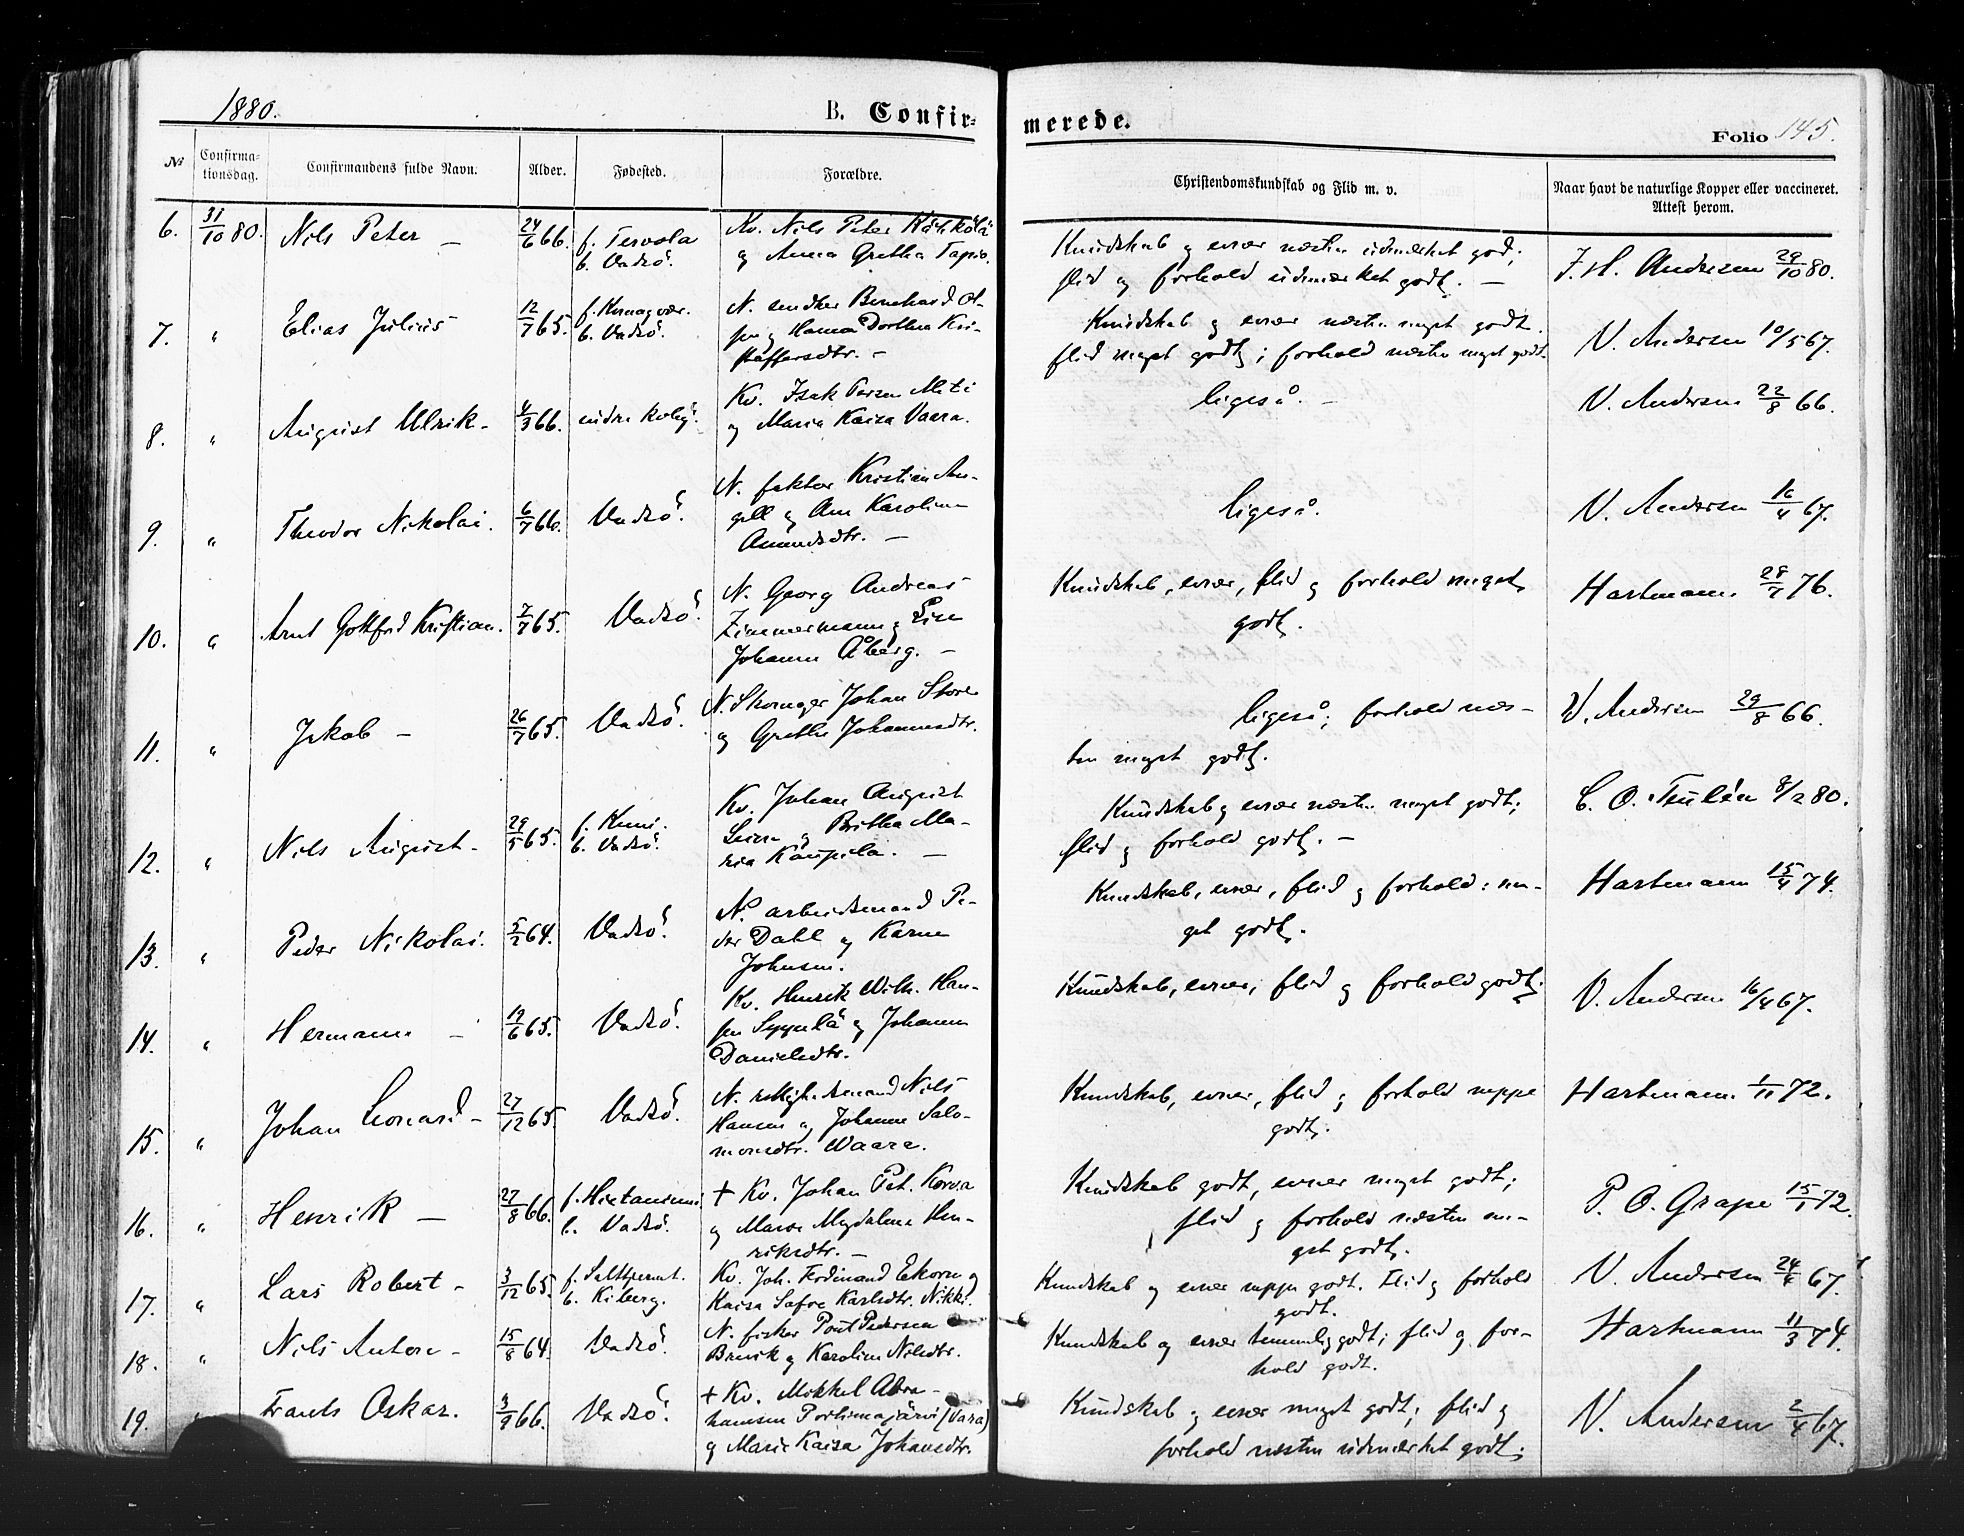 1880.
B. Confir-
merede.
Folio 145.
№
Confirma-
tionsdag.
Confirmandens fulde Navn.
Alder.
Fødested.
Forældre.
Christendomskundskab og Flid m. v.
Naar havt de naturlige Kopper eller vaccineret.
Attest herom.
6. 31/10 80. Nils Peter — 24/6 66. f. Tervola
b. Vadsö.
Kv. Nils Peter
og Anna Gretha Tapio.
Kundskab og evner næsten udmærket god;
flid og forhold udmærket godt. —
J. H. Andersen 29/10 80.
7. " Elias Julius 12/7 65. f. Komagvær.
b. Vadsö.
N. snedker Bernhard Ol-
sen og Hanna Dorthea Kri-
stoffersdtr. —
Kundskab og evner næsten meget godt.
flid meget godt; forhold næsten meget godt.
V. Andersen 10/5 67.
8. " August Ulrik — 4/3 66. indre kvby.
Kv. Isak Persen Meti
og Maria Kaisa Vaara.
ligeså. —
V. Andersen 22/8 66.
9. " Theodor Nikolai. 6/7 66. Vadsö.
N. faktor Kristian An-
gell og Ane Karoline
Amundsdtr. —
ligeså.
V. Andersen 16/4 67.
10. " Arnt Gottfred Kristian. 7/7 65. Vadsö.
N. Georg Andreas
Zimmermann og Lise
Johanne Åberg. —
Kundskab, evner, flid og forhold meget
godt.
Hartmann 28/7 76.
11. " Jakob — 26/7 65. Vadsö.
N. Skomager Johan Store
og Grethe Johannesdtr.
ligeså; forhold næs-
ten meget godt.
V. Andersen 29/8 66.
12. " Nils August — 29/5 65. f. Kemi.
b. Vadsö.
Kv. Johan August
Leina og Britha Ma-
ria Kaupila. —
Kundskab og evner næsten meget godt;
flid og forhold godt. —
C. O. 8/2 80.
13. " Peder Nikolai. 5/2 64. Vadsö.
N. arbeidsmand Pe-
der Dahl og Karen
Johnsen.
Kundskab, evner, flid og forhold: me-
get godt.
Hartmann 15/4 74.
14. " Hermann — 19/6 65. Vadsö.
Kv. Henrik Wilh. Han-
sen Seppälä og Johanne
Danielsdtr.
Kundskab, evner, flid og forhold godt.
V. Andersen 16/4 67.
15. " Johan Leonard — 27/12 65. Vadsö.
N. Nils
Hansen og Johanne Salo-
monsdtr. Waara.
Kundskab, evner, flid og forhold neppe
godt.
Hartmann 1/11 72.
16. " Henrik — 27/8 66. f. Hietaniemi
b. Vadsö.
+ Kv. Johan Pet. Korva
og Maria Magdalena Hen-
riksdtr. —
Kundskab godt, evner meget godt;
flid og forhold næsten me-
get godt.
P. O. Grape 15/1 72.
17. " Lars Robert — 3/12 65. f. Saltfjernt.
b. Kiberg.
Kv. Joh. Ferdinand Ekorn og
Kaisa Sofie Karlsdtr. Nikki.
Kundskab og evner neppe godt. Flid og forhold
godt.
V. Andersen 24/4 67.
18. " Nils Anton — 15/8 64. Vadsö.
N. fisker Poul Pedersen
Brevik og Karoline Nilsdtr.
Kundskab og evner temmelig godt; flid og for-
hold godt.
Hartmann 11/3 74.
19. " Frants Oskar. 3/9 66. Vadsö.
+ Kv. Mikkel Abra-
hamsen Portimojärvi (Vara)
og Marie Kaisa Johansdtr.
Kundskab og evner meget godt; flid og
forhold næsten udmærket godt.
V. Andersen 2/4 67.